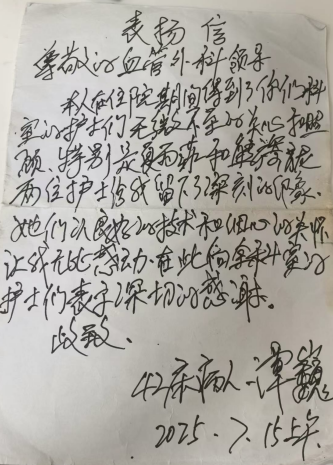 表扬信
尊敬的血管外科领导
本人在住院期间得到了你们科
室的护士们无微不至的关心和照
顾、特别是
两位护士给我留下了深刻的印象.
她们以良好的技术和细心的关怀
让我无比感动.在此向
护士们表示深切的感谢.
此致、
42床病人 谭
2025.7.15上午